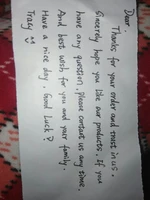 Dear,
Thanks for your order and trust in us.
Sincerely hope you like our products. If you
have any question, please contact us any time.
And best wish for you and your family.
Have a nice day, Good Luck?
Tracy